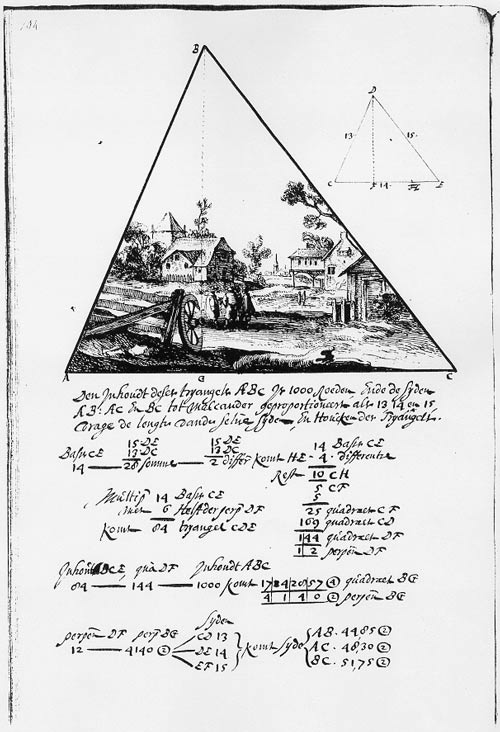 144
B
D
13
15
C
F
14
E
A
G
C
Den Inhoudt deser tryangel ABC Is 1000 Roeden Ende de syden
AB: AC En BC tot malcander geproportioneert als 13 14 en 15
Vrage de lengte van de selve syden En Houcken des tryangels.
15 DE
13 DC
Basis CE
14 — 28 somme — 2 differ komt HE - 4 - differentie
15 DE
13 DC
14 Basis CE
Rest 10 CH
5 CF
5
25 quadraet CF
169 quadraet CD
144 quadraet DF
12 perpen DF
Multip 14 Basis CE
met 6 Helft der perp DF
komt 84 tryangel CDE
Inhout CE quad DF Inhoudt ABC
84 — 144 — 1000 komt 17142857 ④ quadraet BG
4140 ② perpen BG
Syden
perpen DF perp BG
12 — 4140 ②
CD 13
DE 14
EF 15
komt Syde
AB. 4485 ②
AC. 4830 ②
BC. 5175 ②